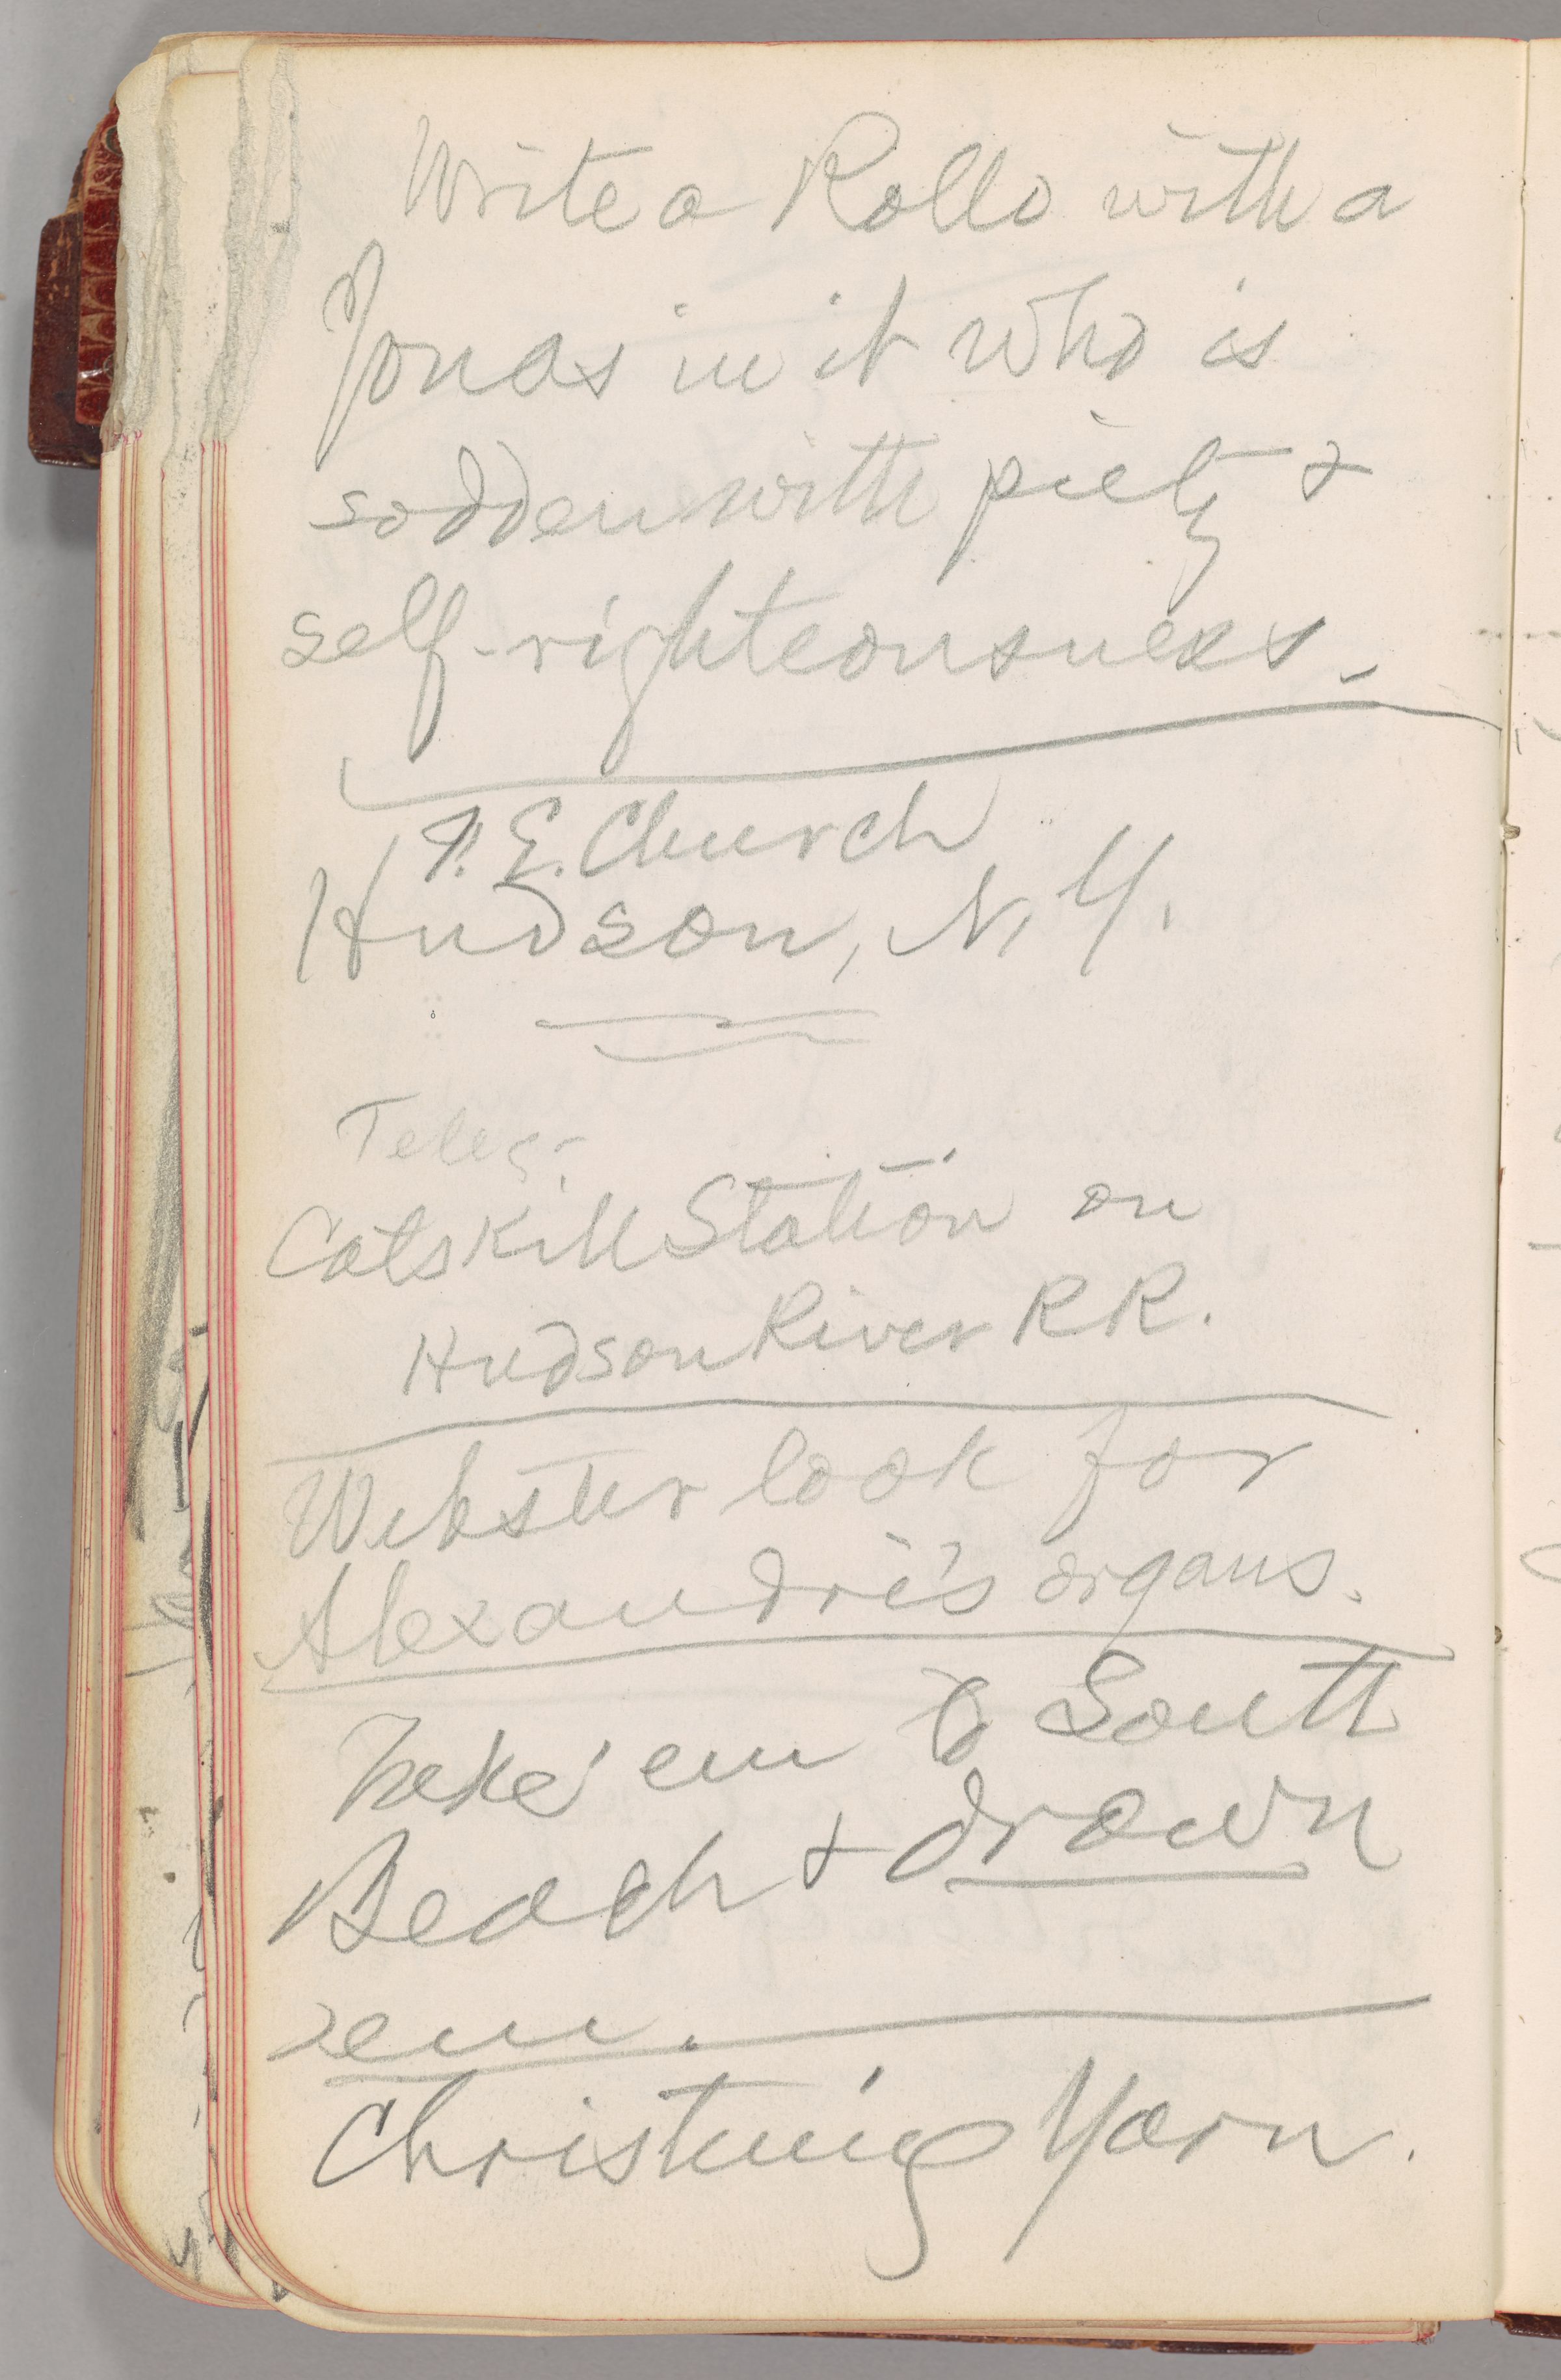 Write a Rollo with a
Jonas in it who is
sodden with piety &
self-righteousness.
F. E. Church
Hudson, N. Y.
Teleg.
Catskill Station on
Hudson River R R.
Webster look for
Alexandre's organs.
Take 'em to South
Beach & drown
'em.
Christening Yarn.